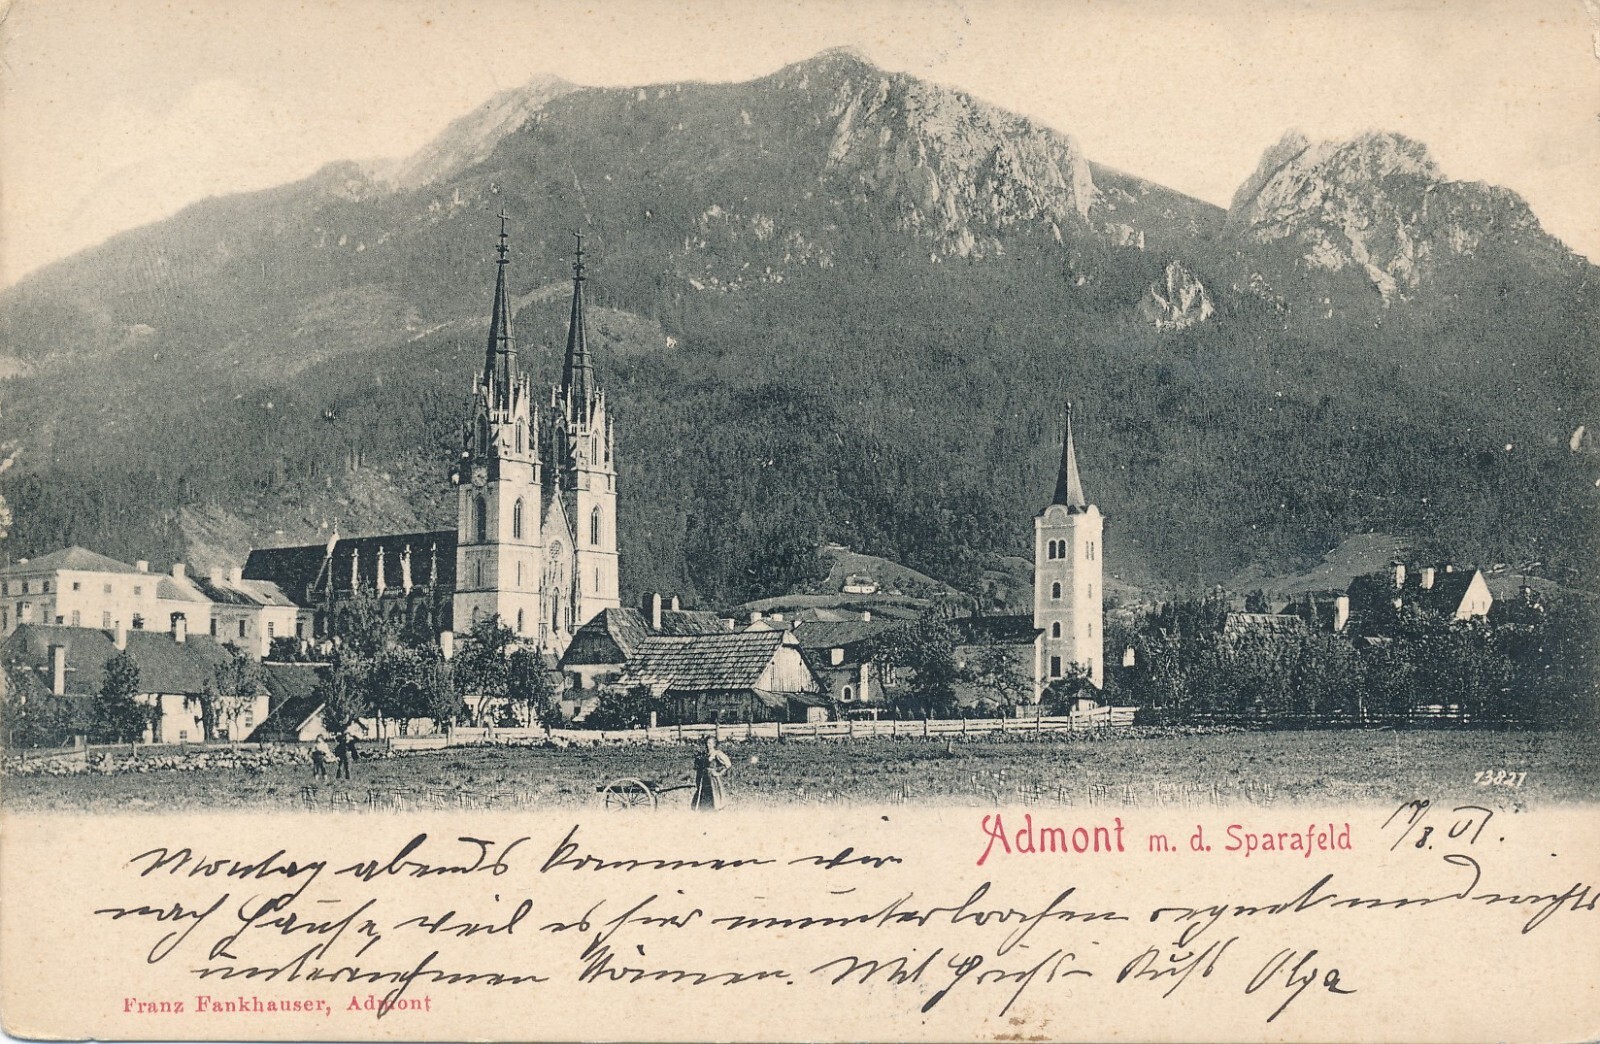 13821
Admont m. d. Sparafeld 17/8. 01.
Montag abends kommen wir
nach Hause, weil es hier ununterbrochen regnet und nichts
unternehmen können. Mit Gruß u Kuß Olga
Franz Fankhauser, Admont